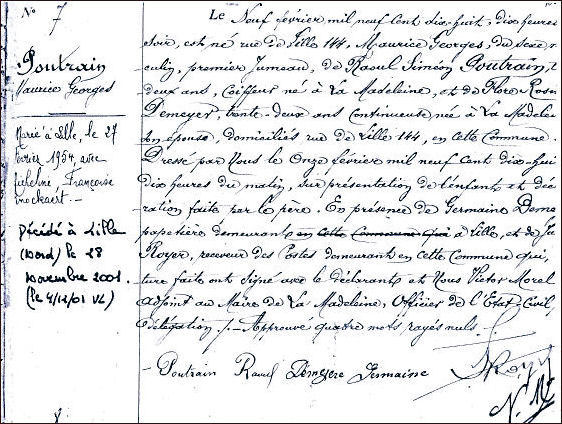 No 7
Poutrain
Maurice Georges
Marié à Lille, le 27
février 1954, avec
Françoise
Décédé à Lille
(Nord) le 28
novembre 2001.
(le 4/12/01 VL)
Le Neuf février mil neuf cent dix-huit, dix heures
soir, est né rue de Lille 144, Maurice Georges, du sexe
culin, premier Jumeau, de Raoul Siméon Poutrain, t
deux ans, Coiffeur né à La Madeleine, et de Flore Rosin
Demeyer, trente-deux ans Continueuse née à La Madelei
son épouse, domiciliés rue de Lille 144, en cette Commune.
Dressé par Nous le Onze février mil neuf cent dix-hui
dix heures du matin, sur présentation de l'enfant et décl
ration faite par le père. En présence de Germaine Deme
papetière demeurant en cette Commune qui à Lille, et de Ju
Royer, receveur des Postes demeurant en cette Commune qui,
ture faite ont signé avec le déclarant et Nous Victor Morel
adjoint au Maire de La Madeleine, Officier de l'Etat-Civil,
délégation ./. Approuvé quatre mots rayés nuls.
Poutrain Raoul Demeyere Germaine
Royer
8